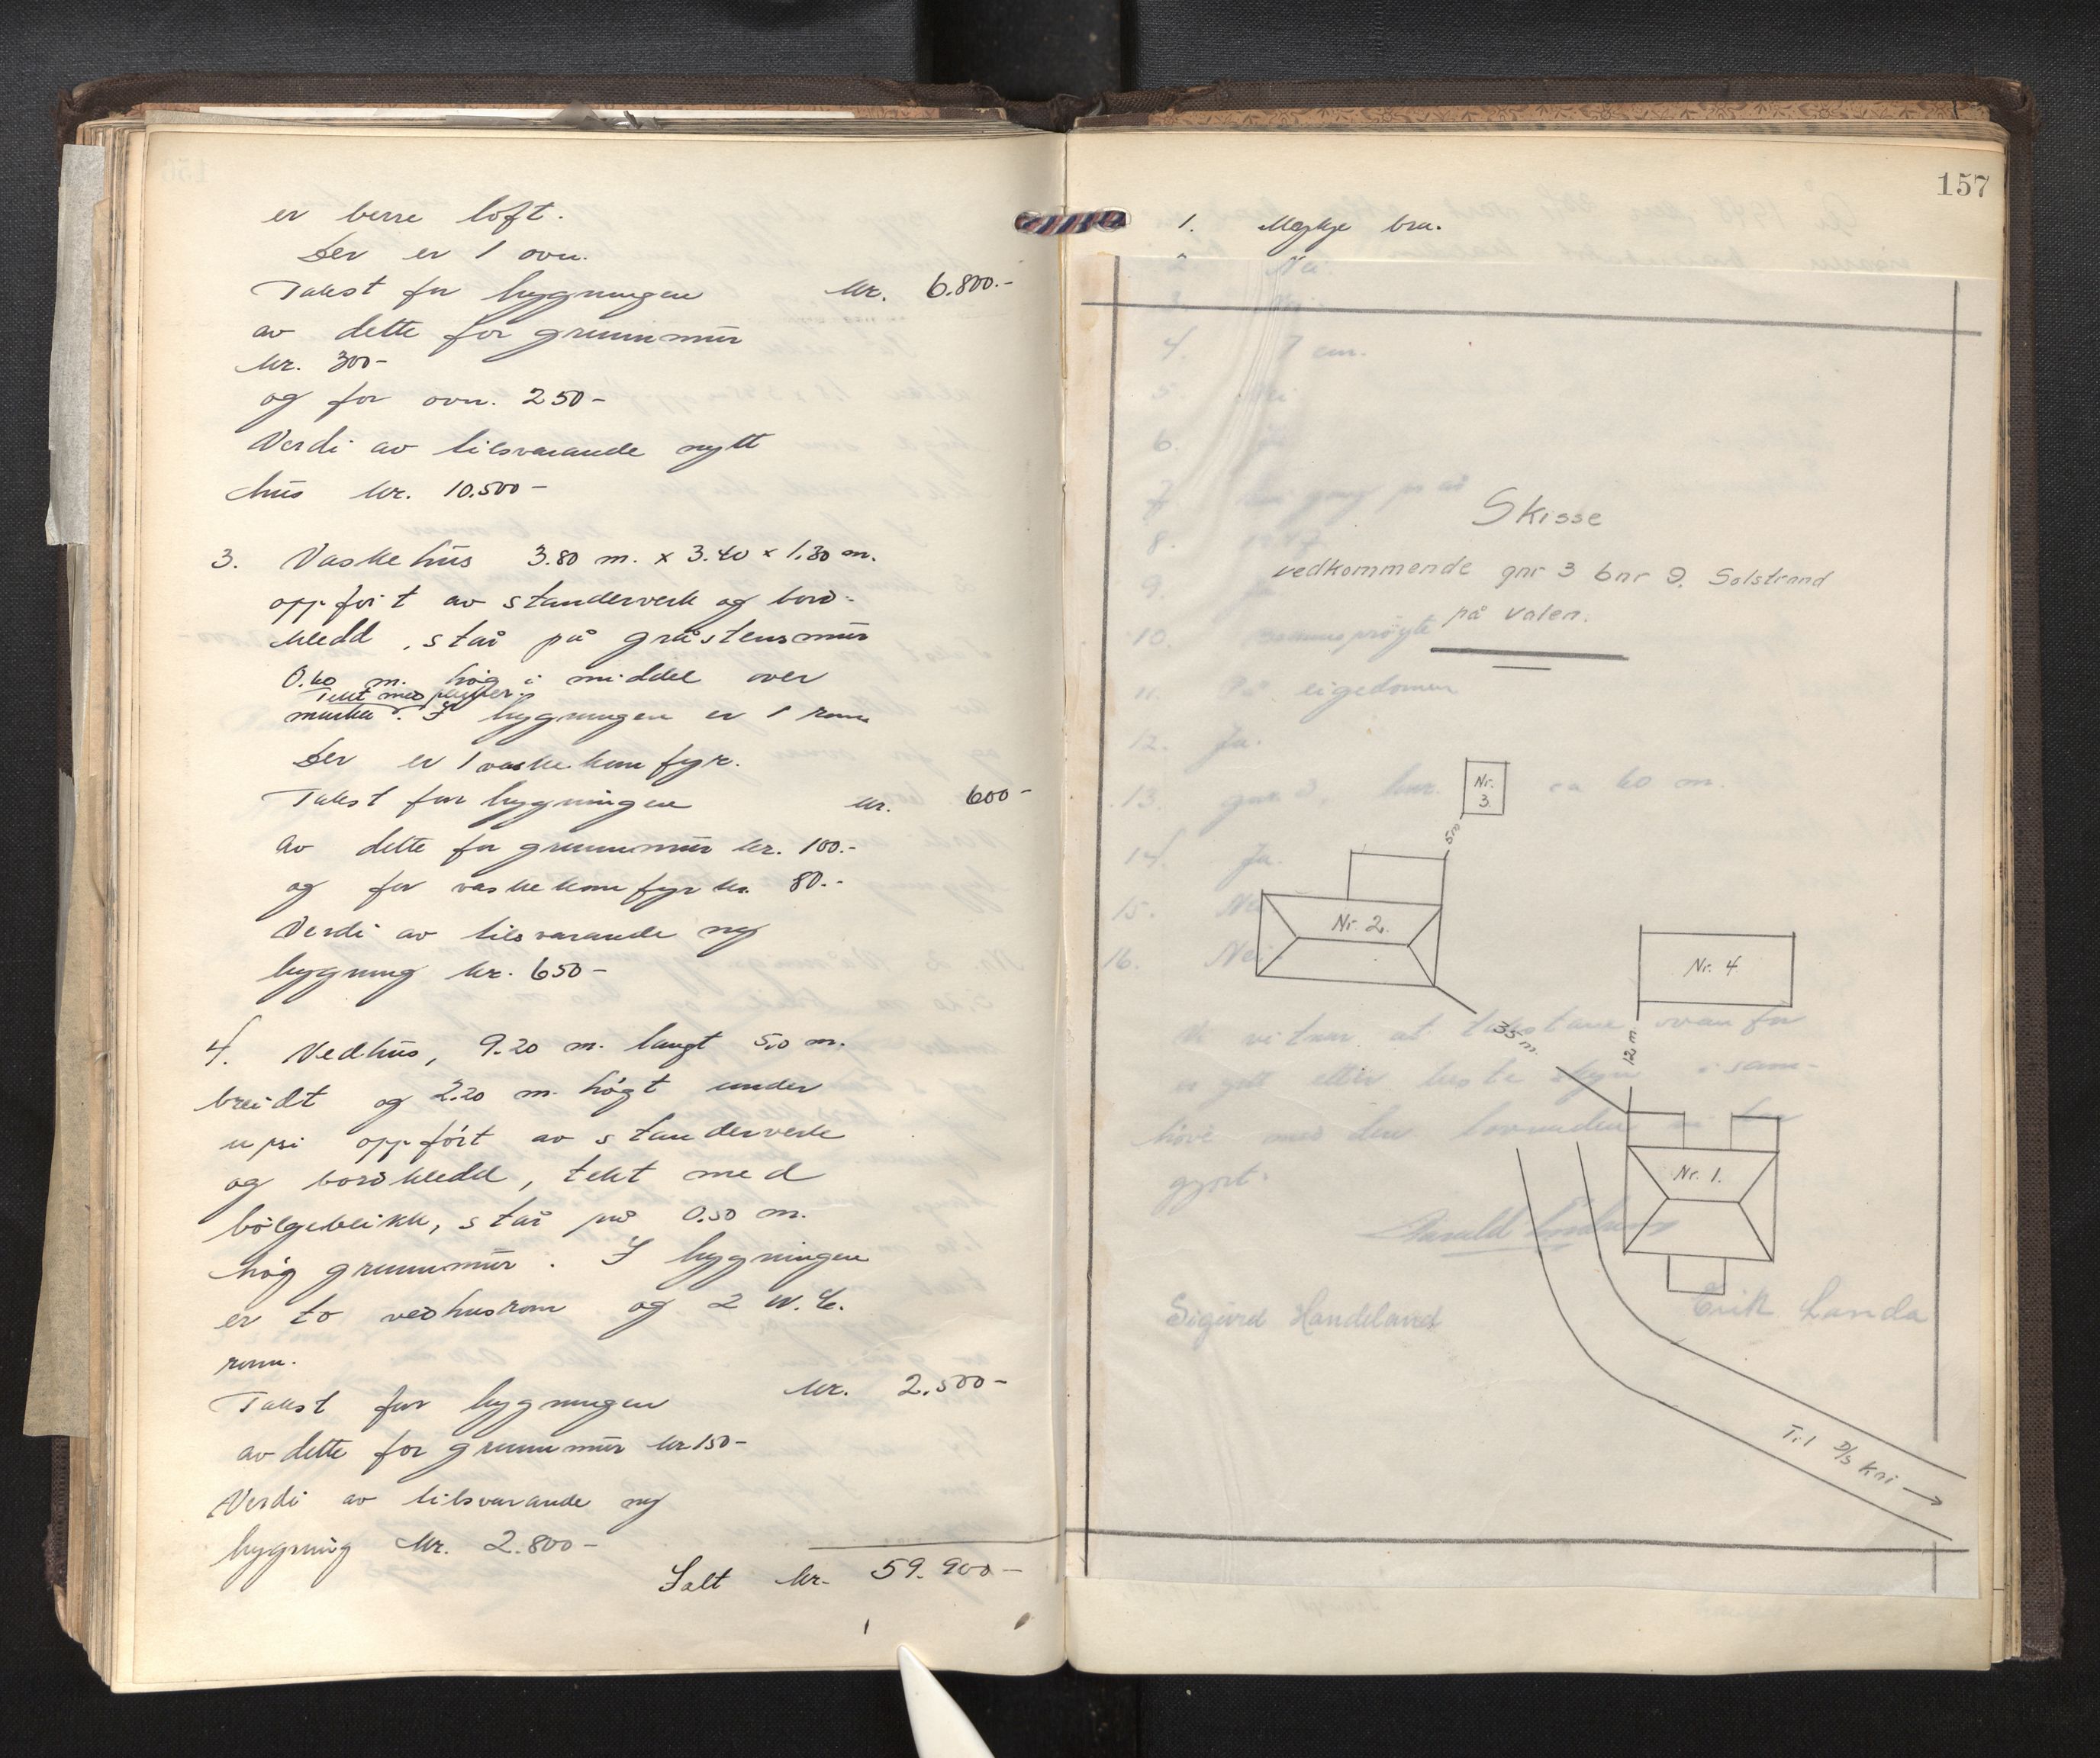 er berre loft.
Der er 1 ovn.
Takst for bygningen kr. 6.800.-
av dette for grunnmur
kr. 300-
og for ovn. 250-
Verdi av tilsvarande nytt
hus kr. 10.500-
3. Vaskehus 3.80 m. x 3.40 x 1.30 m.
oppført av standerverk og bord-
kledd, står på gråsteinsmur
0.60 m. høg i middel over
Tekt med
marka. I bygningen er 1 rom
Der er 1 vaskekomfyr.
Takst for bygningen kr. 600-
av dette for grunnmur kr. 100.-
og for vaskekomfyr kr. 80.-
Verdi av tilsvarande ny
bygning kr. 650-
4. Vedhus, 9.20 m. langt 5.0 m.
breidt og 2.20 m. høgt under
upsi oppført av standerverk
og bordkledd, tekt med
bølgeblikk, står på 0.50 m.
høg grunnmur. I bygningen
er to vedhusrom og 2 W.C.
rom.
Takst for bygningen kr. 2.500-
av dette for grunnmur kr 150-
Verdi av tilsvarande ny
bygning kr. 2.800-
Ialt kr. 59.900-
157
1. Mykje bra.
2. Nei.
3. Nei
4. 7 cm.
5. Nei
6.
7.
8.
Skisse
9.
vedkommende gnr 3 bnr 9. Solstrand
på Valen.
10.
11. På eigedomen
12. Ja.
13. gnr. 3, bnr. ca 60 m.
Nr. 3.
5.0
14. Ja.
15. Nei
Nr. 2.
16. Nei
Nr. 4.
35 m.
12 m.
Vi vitnar at takstane ovanfor
er gitt etter beste skjøn i sam-
høve med den
gjort.
Nr. 1.
Sigurd Handeland Erik Landa
Til D/S Kai →